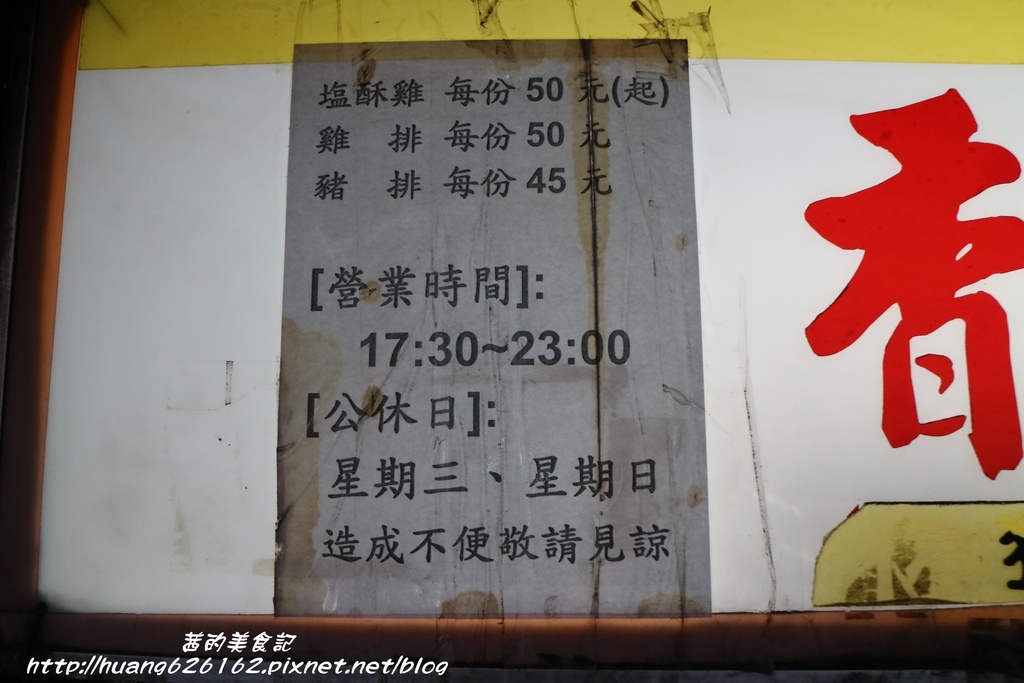 塩酥雞 每份 50 元(起)
雞 排 每份 50 元
豬 排 每份 45 元
[營業時間]:
17:30~23:00
[公休日]:
星期三、星期日
造成不便敬請見諒
香
茜的美食記
http://huang626162.pixnet.net/blog